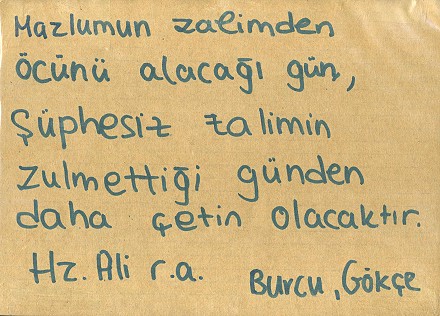 Mazlumun zalimden
öcünü alacağı gün,
Şüphesiz zalimin
zulmettiği günden
daha çetin olacaktır.
Hz. Ali r.a. Burcu, Gökçe